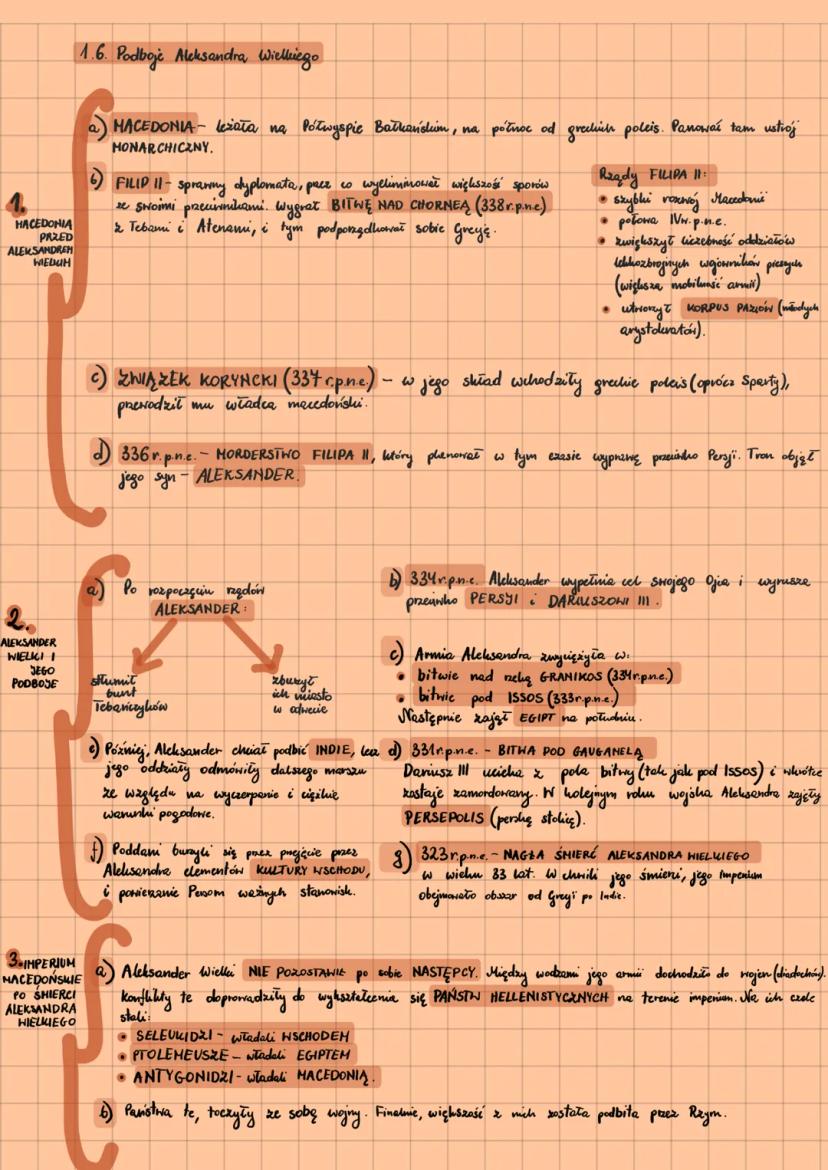 1.6. Podboje Aleksandra Wielkiego
1.
MACEDONIA
PRZED
ALEKSANDREM
WIELKIM
a) MACEDONIA – leżała na Półwyspie Bałkańskim, na północ od greckich poleis. Panował tam ustrój
MONARCHICZNY.
b) FILIP II – sprawny dyplomata, przez co wyeliminował większość sporów
ze swoimi przeciwnikami. Wygrał BITWĘ NAD CHORNEĄ (338r.p.n.e)
z Tebami i Atenami, i tym podporządkował sobie Grecję.
Rządy FILIPA II:
• szybki rozwój Macedonii
• połowa IVw.p.n.e.
• zwiększył liczebność oddziałów
lekkozbrojnych wojowników pieszych
(większa mobilność armii)
• utworzył KORPUS PAZIÓW (młodych
arystokratów).
c) ZWIĄZEK KORYNCKI (337 r.p.n.e.) – w jego skład wchodziły greckie poleis (oprócz Sparty),
przewodził mu władca macedoński.
d) 336 r.p.n.e. – MORDERSTWO FILIPA II, który planował w tym czasie wyprawę przeciwko Persji. Tron objął
jego syn – ALEKSANDER.
2.
ALEKSANDER
WIELKI I
JEGO
PODBOJE
a) Po rozpoczęciu rządów
ALEKSANDER:
stłumił
bunt
Tebańczyków
zburzył
ich miasto
w odwecie
b) 334r.p.n.e. Aleksander wypełnia cel swojego Ojca i wyrusza
przeciwko PERSJI i DARIUSZOWI III.
c) Armia Aleksandra zwyciężyła w:
• bitwie nad rzeką GRANIKOS (334r.p.n.e.)
• bitwie pod ISSOS (333r.p.n.e.)
Następnie zajął EGIPT na południu.
d) 331r.p.n.e. – BITWA POD GAUGANELĄ
Dariusz III ucieka z pola bitwy (tak jak pod ISSOS) i wkrótce
zostaje zamordowany. W kolejnym roku wojska Aleksandra zajęły
PERSEPOLIS (perską stolicę).
e) Później, Aleksander chciał podbić INDIE, lecz
jego oddziały odmówiły dalszego marszu
ze względu na wyczerpanie i ciężkie
warunki pogodowe.
f) Poddani burzyli się przez przejęcie przez
Aleksandra elementów KULTURY WSCHODU,
i powierzanie Persom ważnych stanowisk.
g) 323r.p.n.e. – NAGŁA ŚMIERĆ ALEKSANDRA WIELKIEGO
w wieku 33 lat. W chwili jego śmierci, jego Imperium
obejmowało obszar od Grecji po Indie.
3. IMPERIUM
MACEDOŃSKIE
PO ŚMIERCI
ALEKSANDRA
WIELKIEGO
a) Aleksander Wielki NIE POZOSTAWIŁ po sobie NASTĘPCY. Między wodzami jego armii dochodziło do wojen (diadochów).
Konflikty te doprowadziły do wykształcenia się PAŃSTW HELLENISTYCZNYCH na terenie imperium. Na ich czele
stali:
• SELEUKIDZI – władali WSCHODEM
• PTOLEMEUSZE – władali EGIPTEM
• ANTYGONIDZI – władali MACEDONIĄ.
b) Państwa te, toczyły ze sobą wojny. Finalnie, większość z nich została podbita przez Rzym.